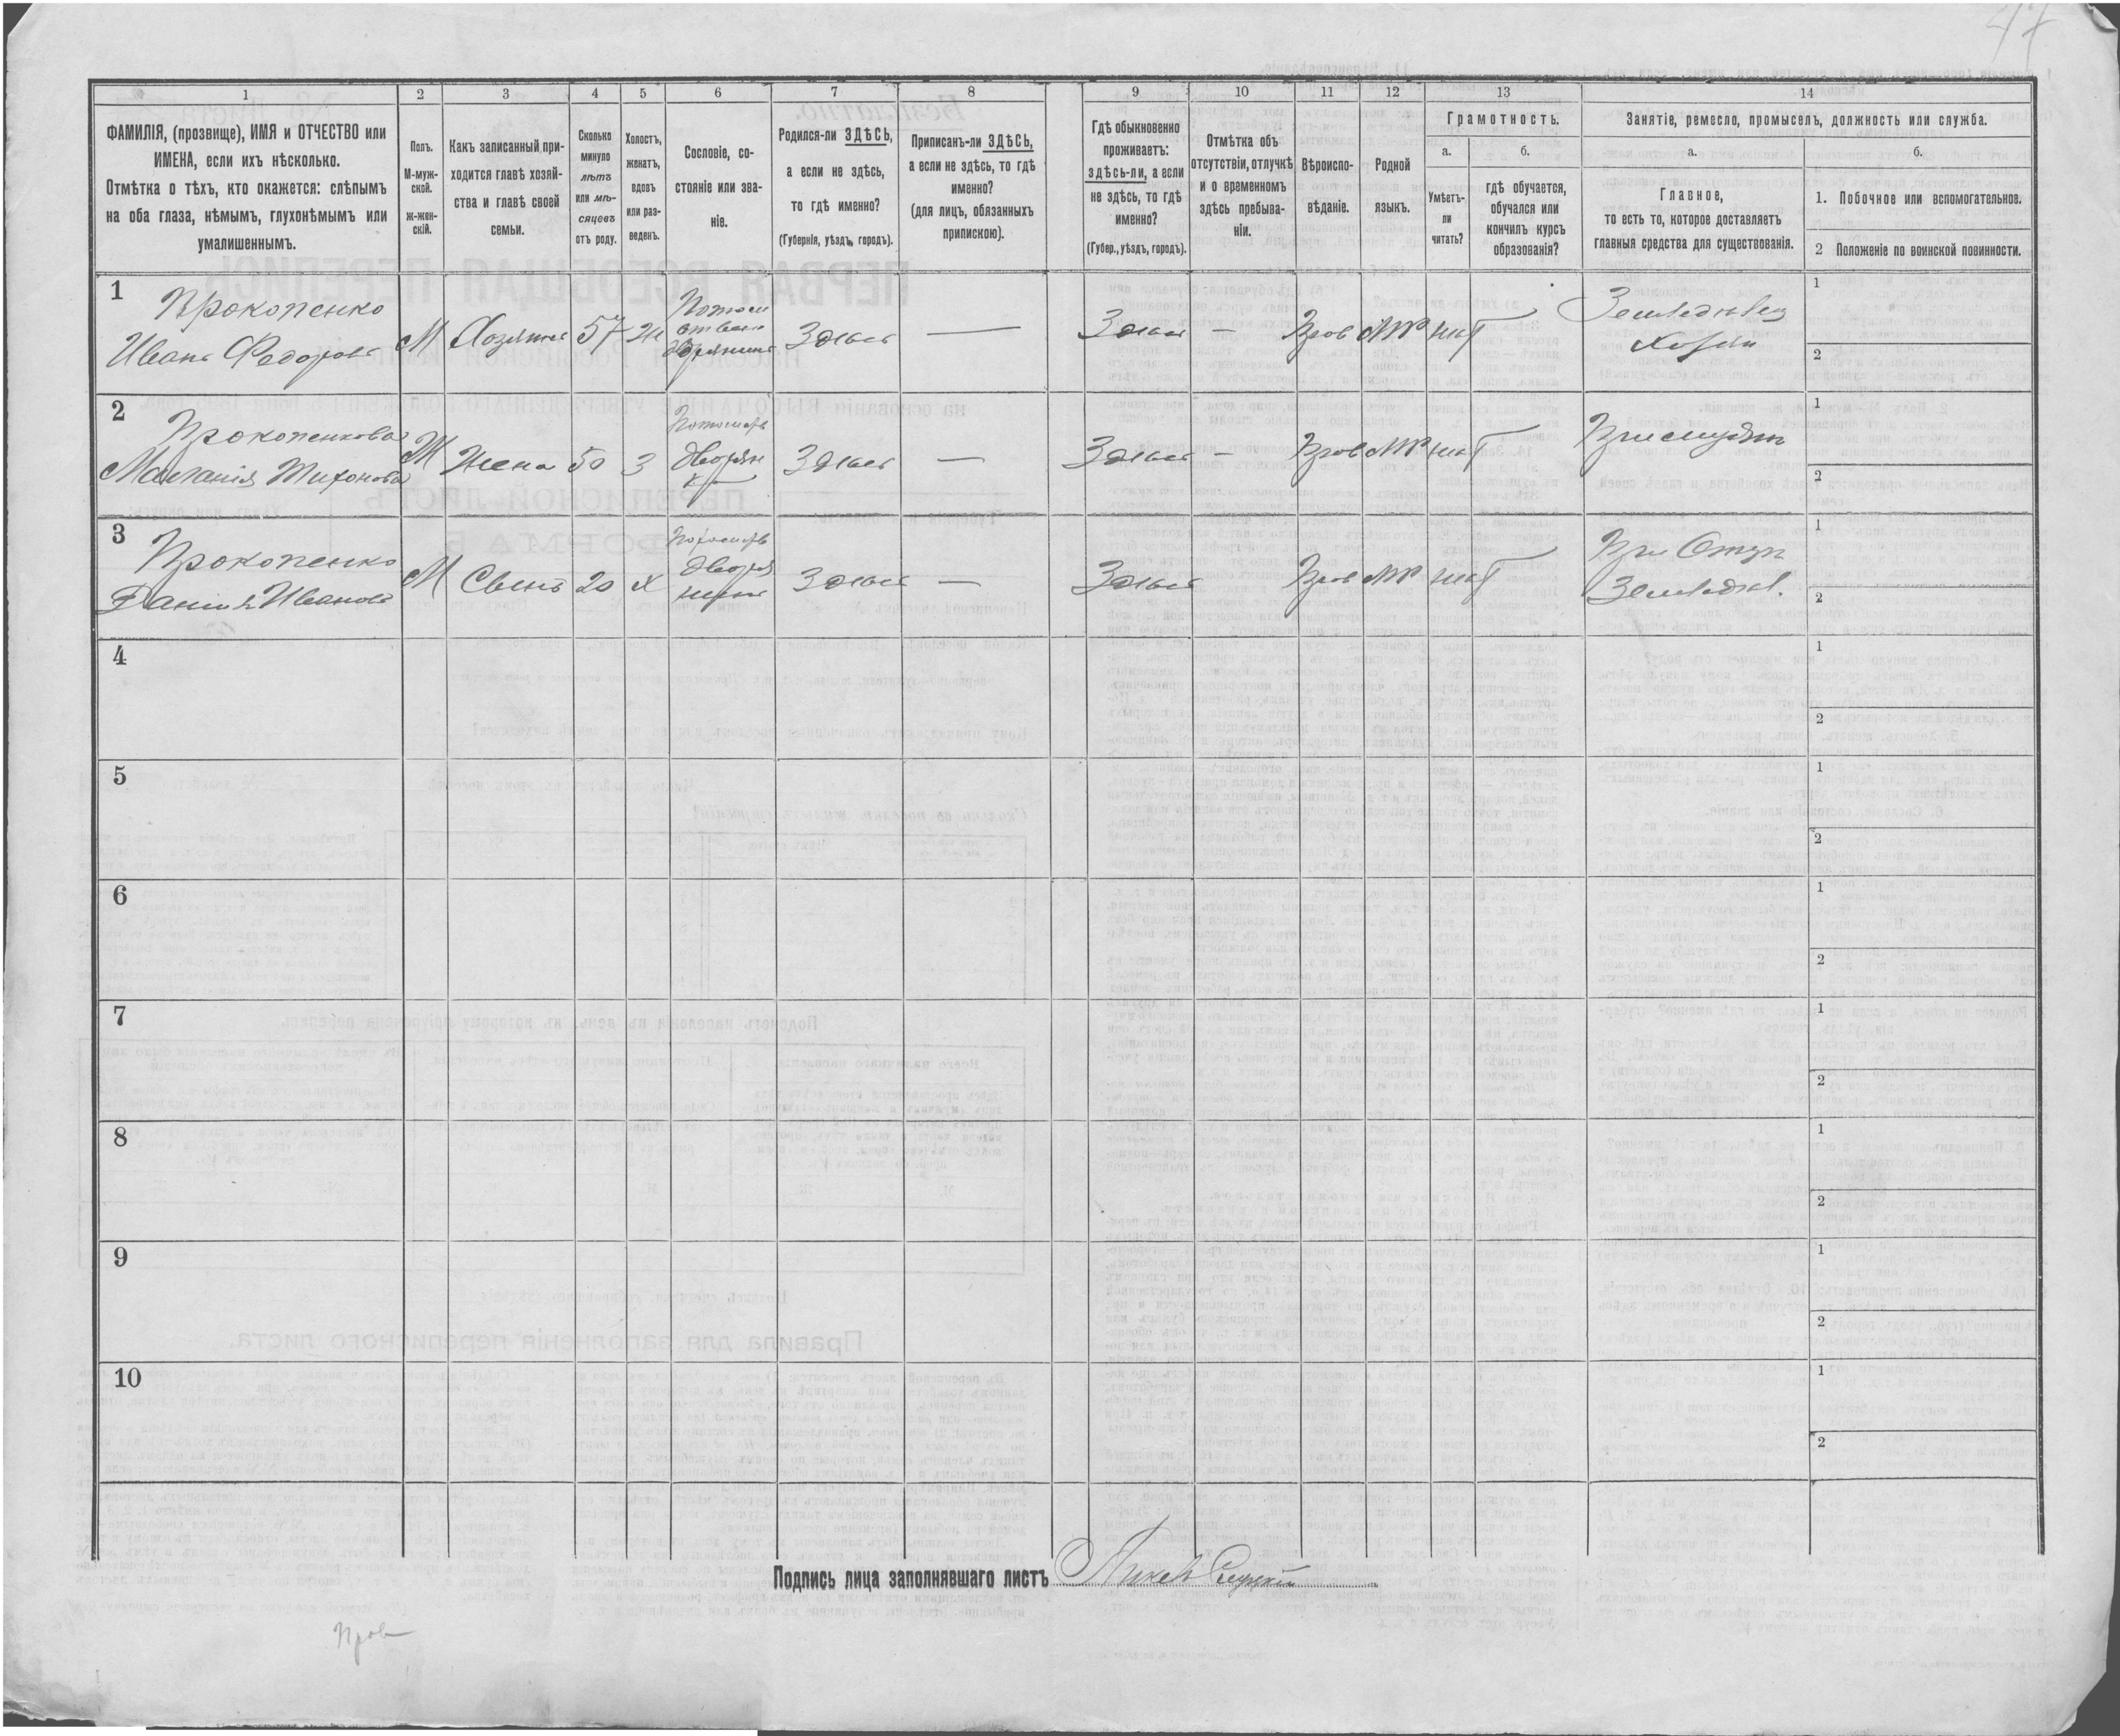 47
1 2 3 4 5 6 7 8 9 10 11 12 13 14
ФАМИЛІЯ, (прозвище), ИМЯ и ОТЧЕСТВО или
ИМЕНА, если ихъ нѣсколько.
Отмѣтка о тѣхъ, кто окажется: слѣпымъ
на оба глаза, нѣмымъ, глухонѣмымъ или
умалишеннымъ.
Полъ.
М-муж-
ской.
ж-жен-
скій.
Какъ записанный при-
ходится главѣ хозяй-
ства и главѣ своей
семьи.
Сколько
минуло
лѣтъ
или мѣ-
сяцевъ
отъ роду.
Холостъ,
женатъ,
вдовъ
или раз-
веденъ.
Сословіе, со-
стояніе или зва-
ніе.
Родился-ли ЗДѢСЬ,
а если не здѣсь,
то гдѣ именно?
(Губернія, уѣздъ, городъ).
Приписанъ-ли ЗДѢСЬ,
а если не здѣсь, то гдѣ
именно?
(для лицъ, обязанныхъ
припискою).
Гдѣ обыкновенно
проживаетъ:
здѣсь-ли, а если
не здѣсь, то гдѣ
именно?
(Губер., уѣздъ, городъ).
Отмѣтка объ
отсутствіи, отлучкѣ
и о временномъ
здѣсь пребыва-
ніи.
Вѣроиспо-
вѣданіе.
Родной
языкъ.
Грамотность.
а.
Умѣетъ-
ли
читать?
б.
гдѣ обучается,
обучался или
кончилъ курсъ
образованія?
Занятіе, ремесло, промыселъ, должность или служба.
а.
Главное,
то есть то, которое доставляетъ
главныя средства для существованія.
б.
1. Побочное или вспомогательное.
2 Положеніе по воинской повинности.
1
Прокопенко
Иванъ Федоровъ
М
Хозяинъ
57
Ж
Потом
ственн
дворянинъ
Здѣсь
—
Здѣсь
—
Прав
МР
нѣт
Земледѣлец
Хозяин
1
2
2
Прокопенкова
Маланія Тихонова
Ж
Жена
50
З
Потомств
дворян
ка
Здѣсь
—
Здѣсь
—
Прав
МР
нѣт
При мужѣ
1
2
3
Прокопенко
Данилъ Ивановъ
М
Сынъ
20
Х
Потомств
дворя
нинъ
Здѣсь
—
Здѣсь
Прав
МР
нѣт
При Отцѣ
Земледѣл.
1
2
4
1
2
5
1
2
6
1
2
7
1
2
8
1
2
9
1
2
10
1
2
Подпись лица заполнявшаго листъ
Пров